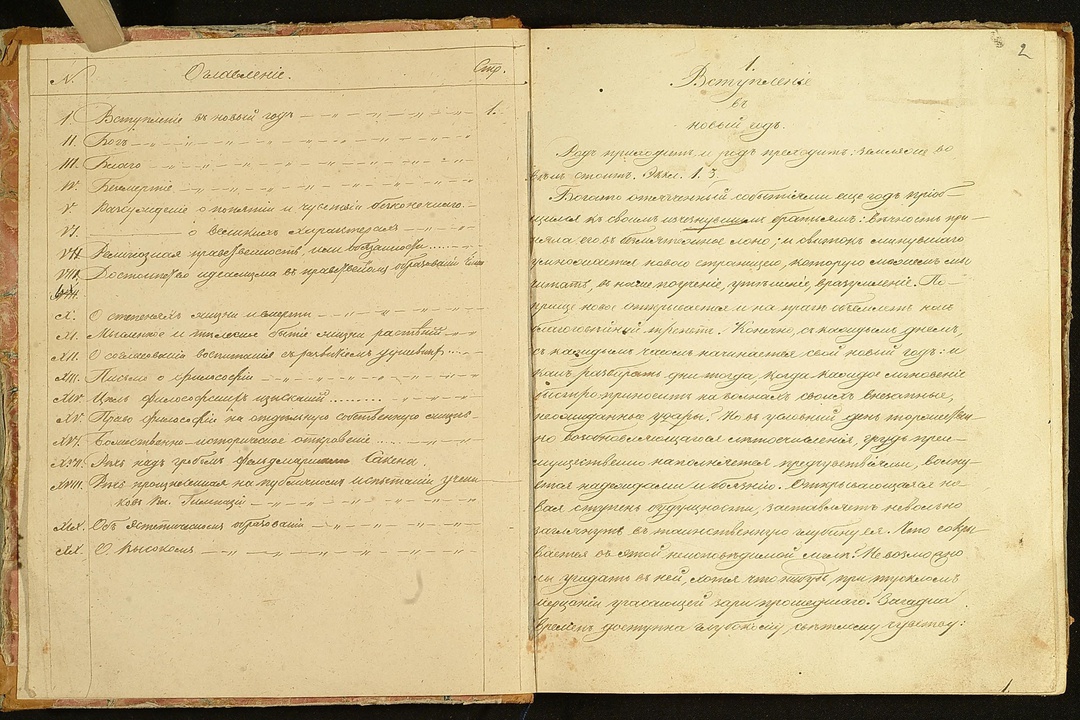 №.
Оглавленіе.
Стр.
I. Вступленіе въ новый годъ 1.
II. Богъ
III. Благо
IV. Безсмертіе
V. о понятіи и чувствѣ безконечнаго.
VI. о великихъ характерахъ
VII. Религіозная нравственность, или
VIII. Достоинство идеализма въ нравственномъ образованіи
X. О степеняхъ жизни и смерти
XI. Мысленное и тѣлесное бытіе жизни растѣній
XII. О согласованіи воспитанія съ развитіемъ
XIII. Письмо о философіи
XIV. Цѣль философскихъ изысканій
XV. Право философіи на отдѣльную собственную
XVI. Божественно-историческое откровеніе
XVII. Рѣчь надъ гробомъ Фельдмаршала Сакена.
XVIII. Рѣчь произнесенная на публичномъ испытаніи учени-
ковъ Гимназіи
XIX. Объ эстетическомъ образованіи
XX. О высокомъ
2
1.
Вступленіе
въ
новый годъ.
Родъ приходитъ, и родъ преходитъ: земля же во
вѣкъ стоитъ. Эккл. 1. 3.
Богато отмѣченный событіями еще годъ пріоб-
щился къ своимъ изчезнувшимъ братьямъ: вѣчность при-
няла его въ лоно; и свитокъ минувшаго
умножается новою страницею, которую можемъ мы
читать, въ наше поученіе, утѣшеніе, вразумленіе. По-
прище новое открывается и на прагѣ объемлетъ насъ
благоговѣйный трепетъ. Конечно, съ каждымъ днемъ,
съ каждымъ часомъ начинается свой новый годъ: и
намъ разбирать дни тогда, когда каждое мгновеніе
быстро приноситъ на волнахъ своихъ внезапные,
неожиданные удары? Но въ условный день торжествен-
но возобновляющагося лѣтосчисленія, грудь преи-
мущественно наполняется предчувствіями, волну-
ется надеждами и боязнію. Открывающаяся но-
вая ступень будущности, заставляетъ невольно
заглянуть въ таинственную глубину ея. Что скры-
вается въ этой неисповѣдимой мглѣ? Невозможно
ли угадать въ ней, хотя что нибудь при тускломъ
мерцаніи угасающей зари прошедшаго? Загадка
временъ доступна глубокому свѣтлому чувству:
1.